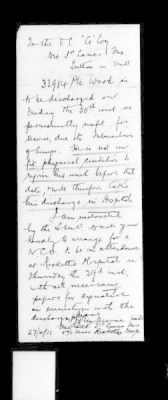 To the O.C. "G" Coy
3rd Lancs. Fus
Sutton on Hull
33984 Pte Wark is
to be discharged on
Friday the 30th inst as
permanently unfit for
Service, due to Tuberculosis
of Lungs. He is not in
fit physical condition to
rejoin his unit before that
date, & will therefore take
his discharge in Hospital
I am instructed
by the S.M.O to ask you
kindly to arrange for a
N.C.O. to be in attendance
at Hospital on
Thursday the 29th inst,
with all necessary
papers for signature
in connection with the
discharge